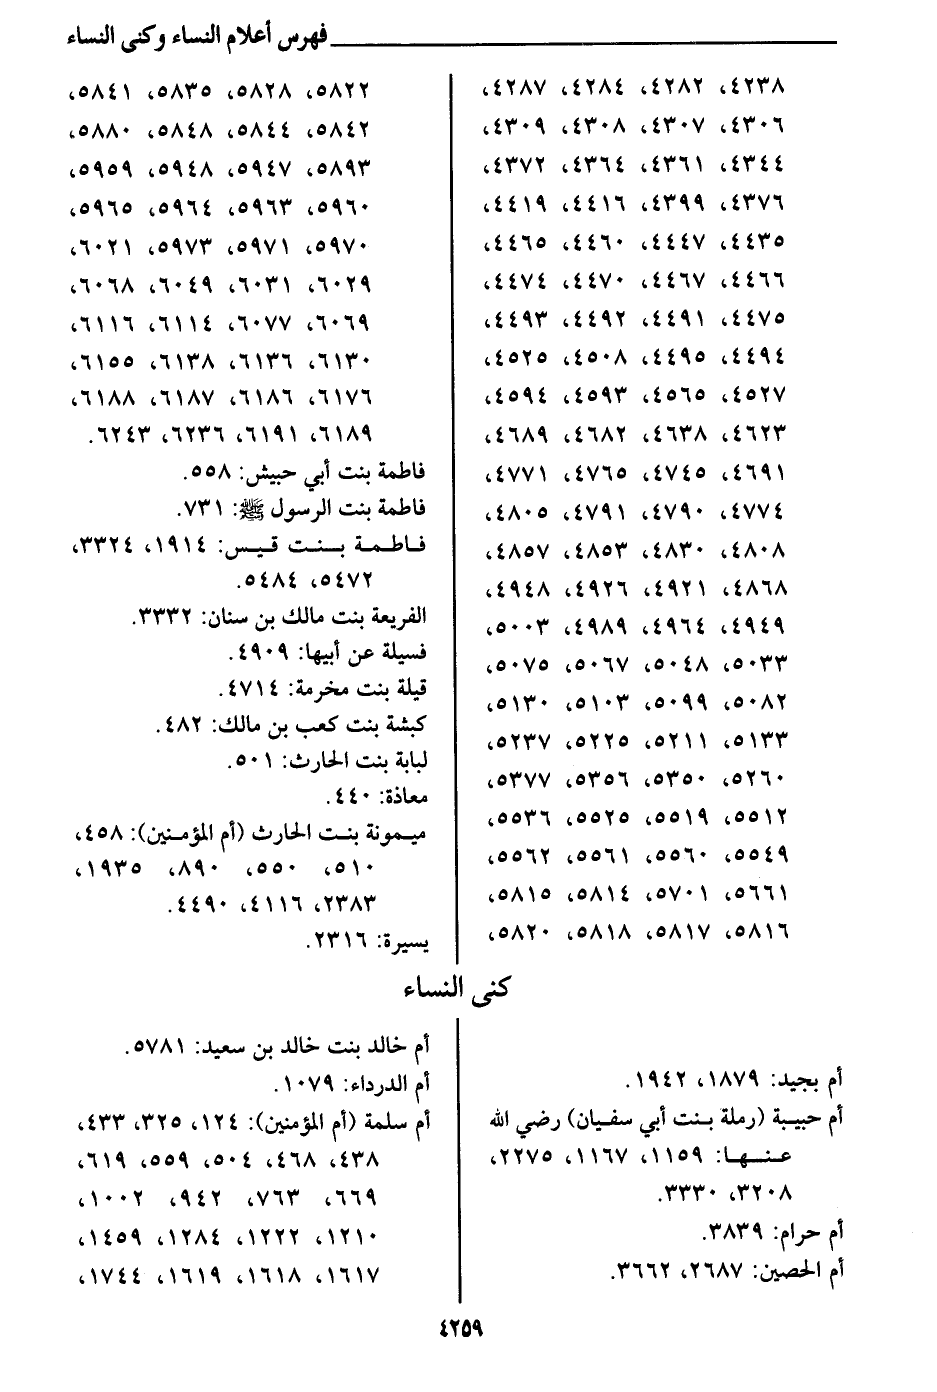 فهرس أعلام النساء وكنى النساء
٤٢٣٨، ٤٢٨٢، ٤٢٨٤، ٤٢٨٧،
٤٣٠٦، ٤٣٠٧، ٤٣٠٨، ٤٣٠٩،
٤٣٤٤، ٤٣٦١، ٤٣٦٤، ٤٣٧٢،
٤٣٧٦، ٤٣٩٩، ٤٤١٦، ٤٤١٩،
٤٤٣٥، ٤٤٤٧، ٤٤٦٠، ٤٤٦٥،
٤٤٦٦، ٤٤٦٧، ٤٤٧٠، ٤٤٧٤،
٤٤٧٥، ٤٤٩١، ٤٤٩٢، ٤٤٩٣،
٤٤٩٤، ٤٤٩٥، ٤٥٠٨، ٤٥٢٥،
٤٥٢٧، ٤٥٦٥، ٤٥٩٣، ٤٥٩٤،
٤٦٢٣، ٤٦٣٨، ٤٦٨٢، ٤٦٨٩،
٤٦٩١، ٤٧٤٥، ٤٧٦٥، ٤٧٧١،
٤٧٧٤، ٤٧٩٠، ٤٧٩١، ٤٨٠٥،
٤٨٠٨، ٤٨٣٠، ٤٨٥٣، ٤٨٥٧،
٤٨٦٨، ٤٩٢١، ٤٩٢٦، ٤٩٤٨،
٤٩٤٩، ٤٩٦٤، ٤٩٨٩، ٥٠٠٣،
٥٠٣٣، ٥٠٤٨، ٥٠٦٧، ٥٠٧٥،
٥٠٨٢، ٥٠٩٩، ٥١٠٣، ٥١٣٠،
٥١٣٣، ٥٢١١، ٥٢٢٥، ٥٢٣٧،
٥٢٦٠، ٥٣٥٠، ٥٣٥٦، ٥٣٧٧،
٥٥١٢، ٥٥١٩، ٥٥٢٥، ٥٥٣٦،
٥٥٤٩، ٥٥٦٠، ٥٥٦١، ٥٥٦٢،
٥٦٦١، ٥٧٠١، ٥٨١٤، ٥٨١٥،
٥٨١٦، ٥٨١٧، ٥٨١٨، ٥٨٢٠،
٥٨٢٢، ٥٨٢٨، ٥٨٣٥، ٥٨٤١،
٥٨٤٢، ٥٨٤٤، ٥٨٤٨، ٥٨٨٠،
٥٨٩٣، ٥٩٤٧، ٥٩٤٨، ٥٩٥٩،
٥٩٦٠، ٥٩٦٣، ٥٩٦٤، ٥٩٦٥،
٥٩٧٠، ٥٩٧١، ٥٩٧٣، ٦٠٢١،
٦٠٢٩، ٦٠٣١، ٦٠٤٩، ٦٠٦٨،
٦٠٦٩، ٦٠٧٧، ٦١١٤، ٦١١٦،
٦١٣٠، ٦١٣٦، ٦١٣٨، ٦١٥٥،
٦١٧٦، ٦١٨٦، ٦١٨٧، ٦١٨٨،
٦١٨٩، ٦١٩١، ٦٢٣٦، ٦٢٤٣.
فاطمة بنت أبي حبيش: ٥٥٨.
فاطمة بنت الرسول ﷺ: ٧٣١.
فاطمة بنت قيس: ١٩١٤، ٣٣٢٤،
٥٤٧٢، ٥٤٨٤.
الفريعة بنت مالك بن سنان: ٣٣٣٢.
فسيلة عن أبيها: ٤٩٠٩.
قيلة بنت مخرمة: ٤٧١٤.
كبشة بنت كعب بن مالك: ٤٨٢.
لبابة بنت الحارث: ٥٠١.
معاذة: ٤٤٠.
ميمونة بنت الحارث (أم المؤمنين): ٤٥٨،
٥١٠، ٥٥٠، ٨٩٠، ١٩٣٥،
٢٣٨٣، ٤١١٦، ٤٤٩٠.
يسيرة: ٢٣١٦.
كنى النساء
أم بجيد: ١٨٧٩، ١٩٤٢.
أم حبيبة (رملة بنت أبي سفيان) رضي الله
عنها: ١١٥٩، ١١٦٧، ٢٢٧٥،
٣٢٠٨، ٣٣٣٠.
أم حرام: ٣٨٣٩.
أم الحصين: ٢٦٨٧، ٣٦٦٢.
أم خالد بنت خالد بن سعيد: ٥٧٨١.
أم الدرداء: ١٠٧٩.
أم سلمة (أم المؤمنين): ١٢٤، ٣٢٥، ٤٣٣،
٤٣٨، ٤٦٨، ٥٠٤، ٥٥٩، ٦١٩،
٦٦٩، ٧٦٣، ٩٤٢، ١٠٠٢،
١٢١٠، ١٢٢٢، ١٢٨٤، ١٤٥٩،
١٦١٧، ١٦١٨، ١٦١٩، ١٧٤٤،
٤٢٥٩